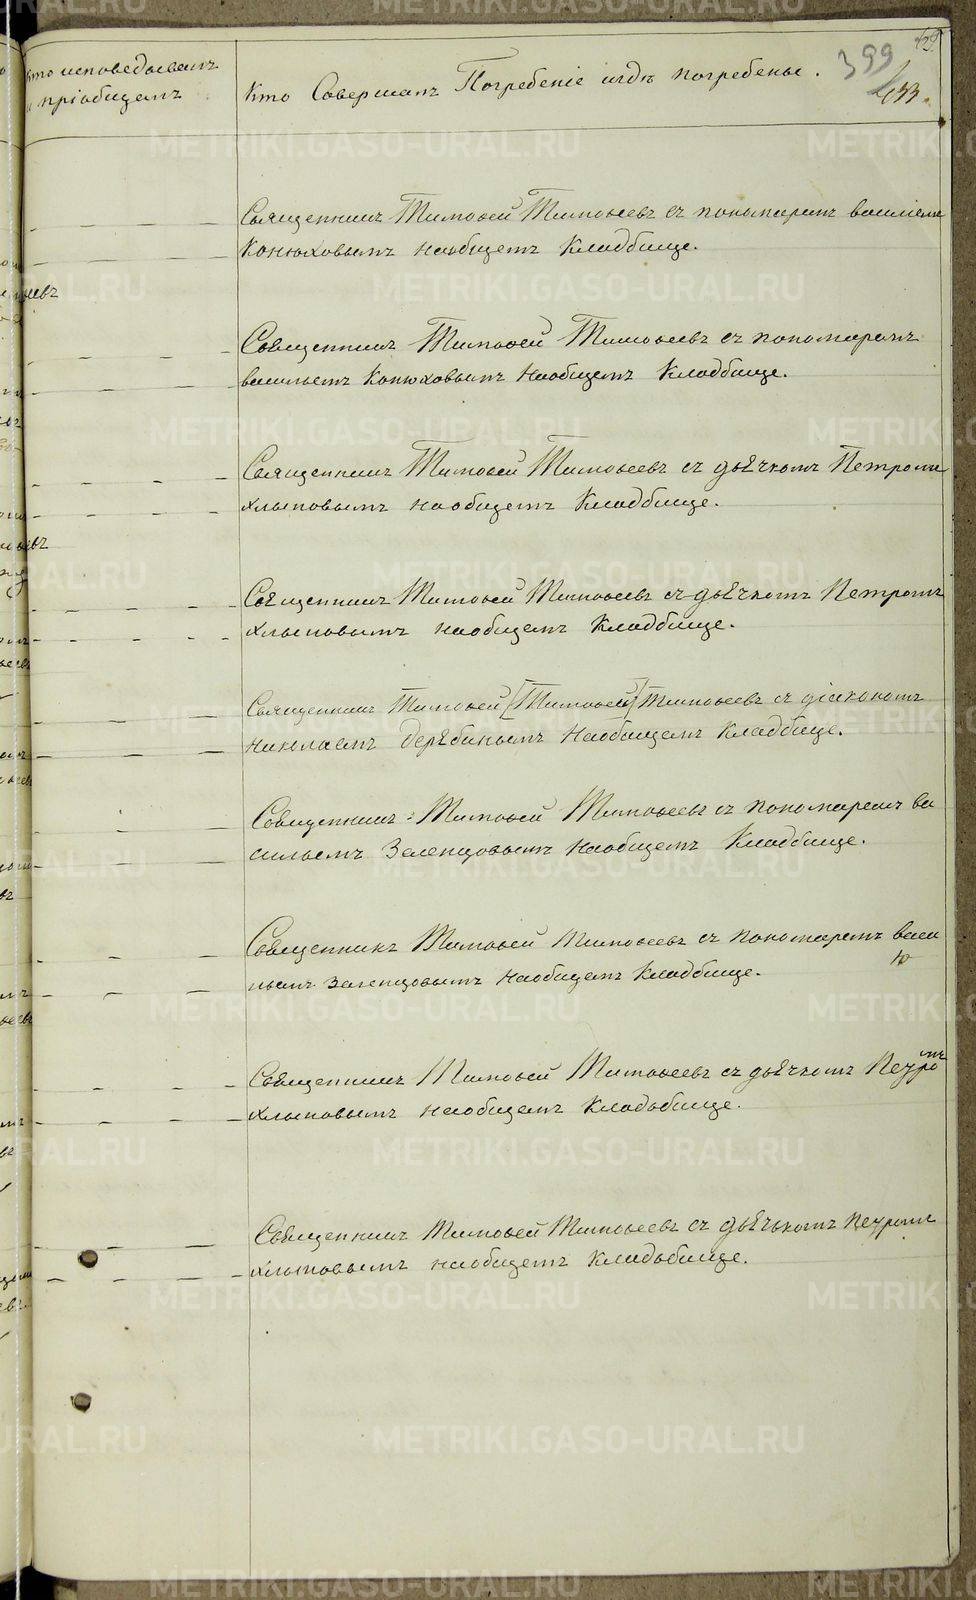 399
433.
Кто исповедовалъ
и пріобщалъ
Кто Совершалъ Погребеніе игдѣ погребены.
Священникъ Тимоѳей Тимоѳеевъ съ пономаремъ василіемъ
Конюховымъ наобщемъ Кладбище.
Священникъ Тимоѳей Тимоѳеевъ съ пономаремъ
васильемъ Конюховымъ Наобщемъ Кладбище.
Священникъ Тимоѳей Тимоѳеевъ съ дьячкомъ Петромъ
Хлыповымъ наобщемъ Кладбище.
Священникъ Тимоѳей Тимоѳеевъ съ дьячкомъ Петромъ
Хлыповымъ наобщемъ Кладбище.
Священникъ Тимоѳей [Тимоѳей] Тимоѳеевъ съ діакономъ
Николаемъ Дерябинымъ Наобщемъ Кладбище.
Священникъ Тимоѳей Тимоѳеевъ съ пономаремъ ва
сильемъ Зеленцовымъ Наобщемъ Кладбище.
Священникъ Тимоѳей Тимоѳеевъ съ пономаремъ васи
льемъ Зеленцовымъ Наобщемъ Кладбище.
Священникъ Тимоѳей Тимоѳеевъ съ дьячкомъ Петромъ
Хлыповымъ наобщемъ Кладьбище.
Священникъ Тимоѳей Тимоѳеевъ съ дьячькомъ Петромъ
Хлыповымъ наобщемъ Кладьбище.
METRIKI.GASO-URAL.RU